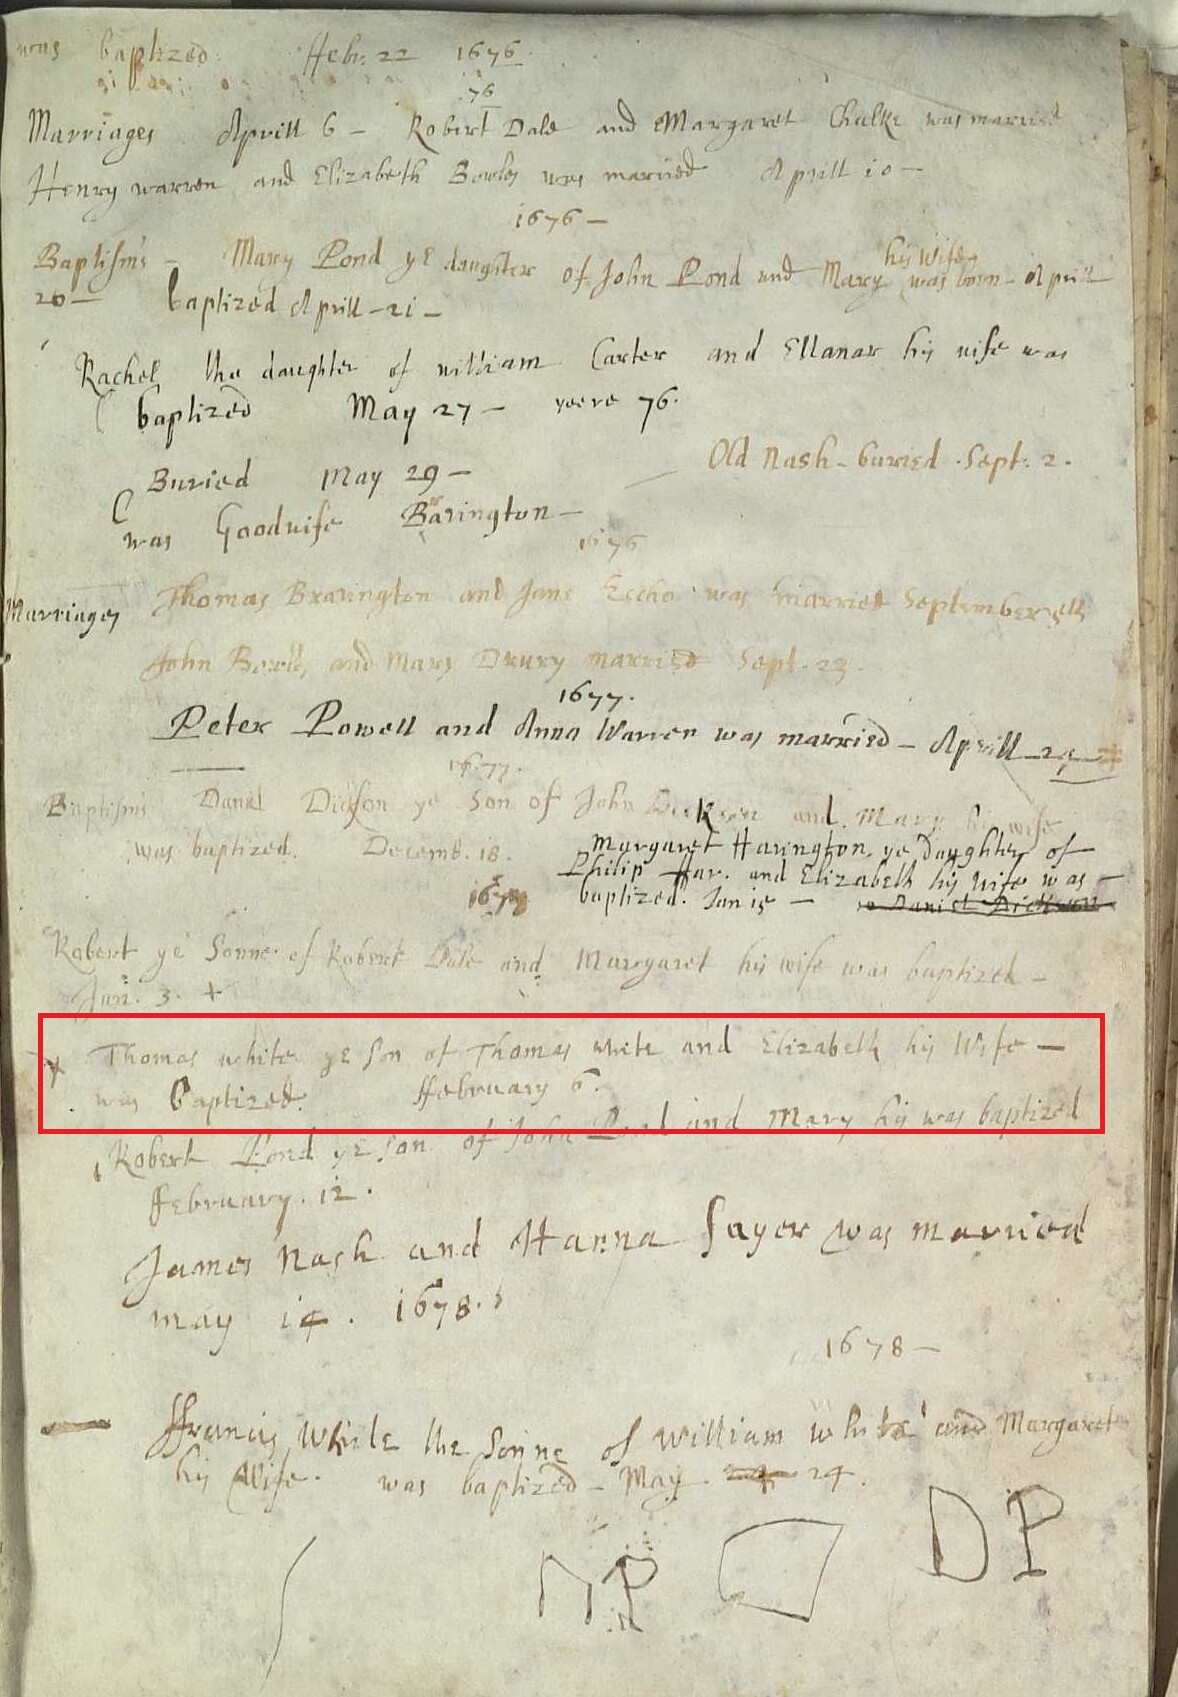 baptized Feb: 22 1676.
76
Marriages Aprill 6 – Robert Dale and Margaret Chalke was married
Henry warren and Elizabeth Bowles was married Aprill 10 –
1676 –
his Wife
Baptisms – Mary Pond ye daughter of John Pond and Mary was born – Aprill
20 – baptized Aprill – 21 –
Rachel the daughter of william Carter and Ellanar his wife was
baptized May 27 – yeere 76.
Old Nash – buried Sept: 2.
Buried May 29 –
was Goodwife Barington –
1676
Marriages Thomas Brarington and Jane was married September 5th
John and Mary Drury married Sept. 23.
1677.
Peter Powell and Anna Warren was married – Aprill
1677.
Baptisms Daniel Dickson ye Son of John Dickson and Mary his wife
was baptized. Decemb. 18.
Margaret Harington ye daughter of
Philip Har. and Elizabeth his wife was –
baptized. Jan 15 – Daniel Dickson
Robert ye Sonne of Robert Dale and Margaret his wife was baptized –
Jan. 3. +
Thomas white ye son of Thomas white and Elizabeth his Wife –
was Baptized. ffebruary 6.
Robert Pond ye son of John Pond and Mary his was baptized
ffebruary. 12.
James Nash and Hanna Sayer was married
may 14. 1678.
1678 –
ffrancis White the Sonne of William white and Margaret
his Wife. was baptized – May 24.
DP